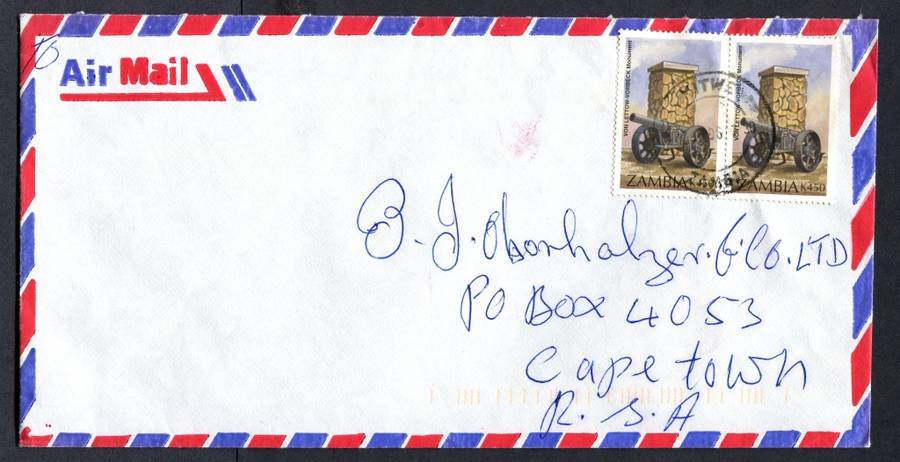 Air Mail
VON LETTOW-VORBECK Monument
ZAMBIA
VON LETTOW-VORBECK Monument
ZAMBIA K450
ZAMBIA
B. J. Oberholzer. & Co. LTD
PO Box 4053
Cape town
R. S. A